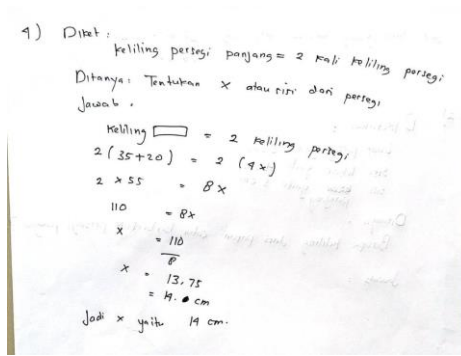 4) Diket :
keliling persegi panjang = 2 kali keliling persegi
Ditanya : Tentukan x atau sisi dari persegi
Jawab .
Keliling ▭ = 2 keliling persegi
2 (35+20) = 2 (4x)
2 x 55 = 8x
110 = 8x
x = 110
8
x = 13,75
= 14. cm
Jadi x yaitu 14 cm.